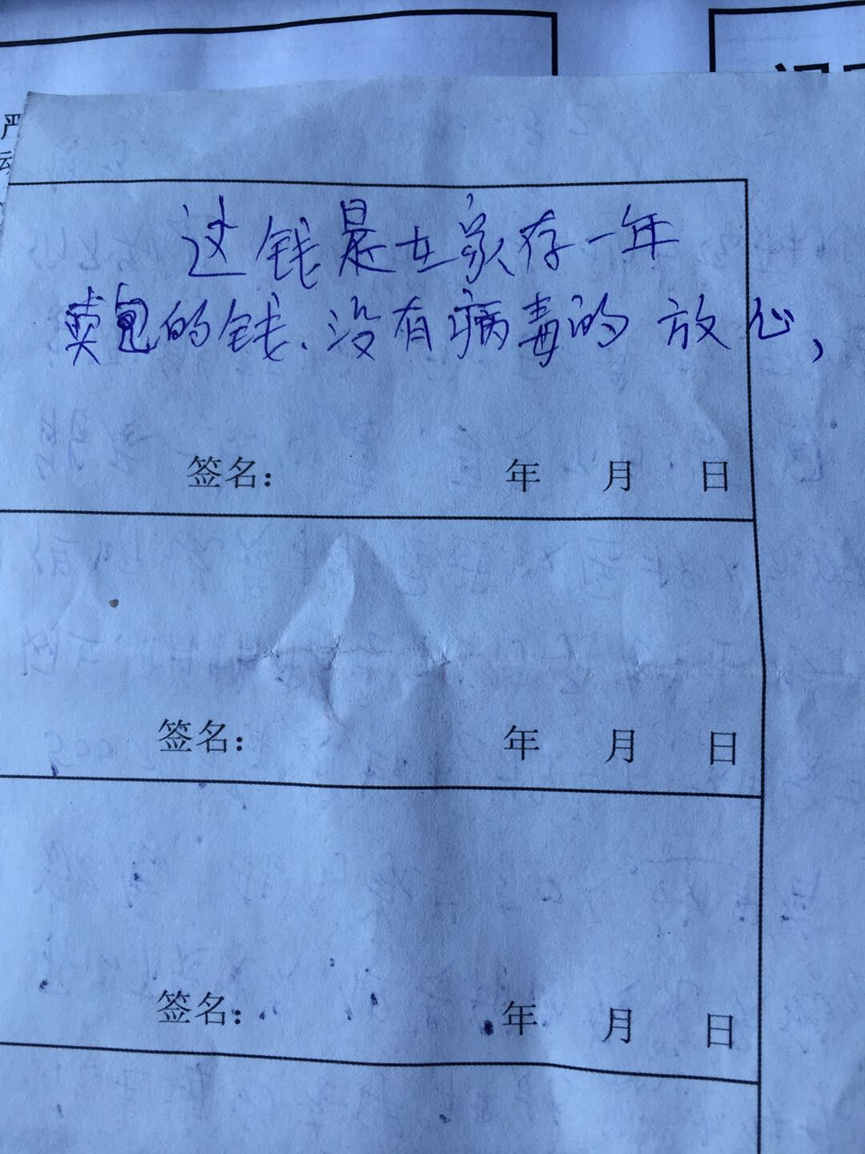 这钱是在家存一年
卖包的钱、没有病毒的 放心,
签名： 年 月 日
签名： 年 月 日
签名： 年 月 日